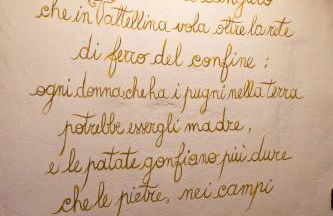 che in Valtellina vola oltre la rete
di ferro del confine :
ogni donna che ha i pugni nella terra
potrebbe essergli madre,
e le patate gonfiano più dure
che le pietre, nei campi